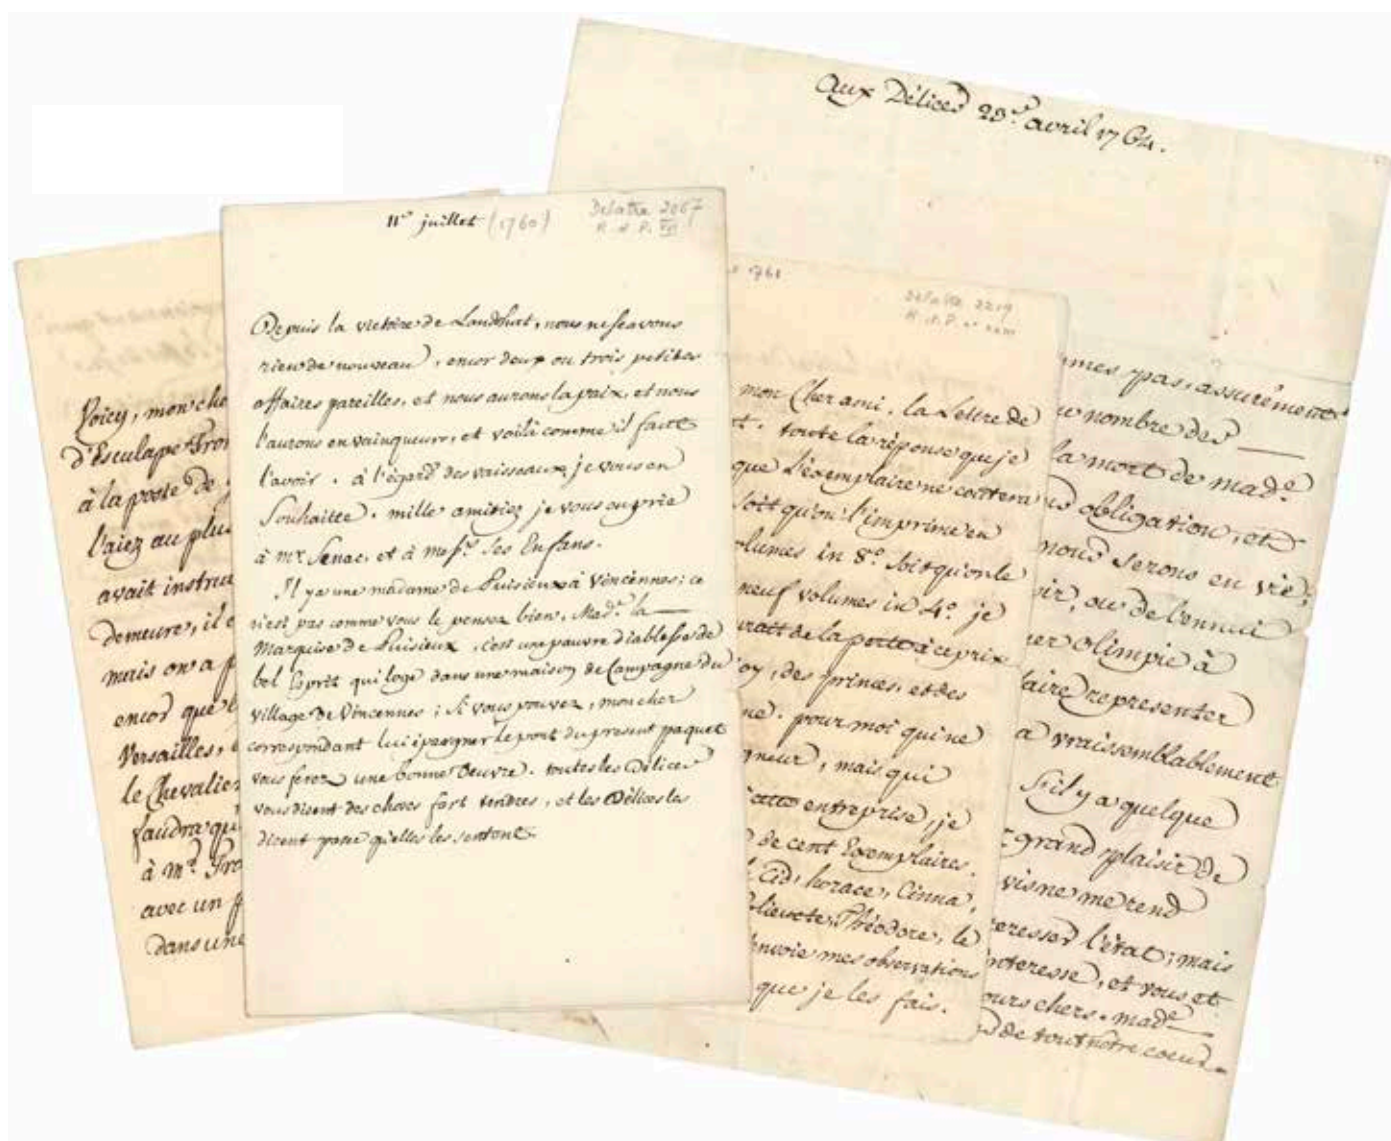 Aux Délices 29e. avril 1764.
11e juillet (1760) Delatre 2067
Depuis la victoire de Landshut, nous ne sçavons
rien de nouveau, encor deux ou trois petites
affaires pareilles, et nous aurons la paix, et nous
l'aurons en vainqueurs, et voilà comme il faut
l'avoir. à l'égard des vaisseaux, je vous en
Souhaitte. mille amitiez je vous en prie
à mr. Senac, et à messrs. ses Enfans.
Il y a une madame de Puisieux à Vincennes; ce
n'est pas comme vous le pensez bien, Made. la
Marquise de Puisieux, c'est une pauvre diablesse de
bel Esprit qui loge dans une maison de Campagne du
village de Vincennes; Si vous pouvez, mon cher
correspondant lui épargner le port du présent paquet
vous ferez une bonne oeuvre. toutes les Délices
vous disent des choses fort tendres, et les Délices les
disent parce qu'elles les sentent.
Voicy, mon che
d'Esculape Tron
à la poste de
l'aiez au plu
avait instru
demeure, il e
mais on a p
encor que
Versailles,
le Chevalier
faudra qu
à Mr. Tro
avec un p
dans une
1761
Delatre 2219
mon Cher ami, la Lettre de
t. toute la réponse que je
que l'exemplaire ne coutera
soit qu'on l'imprime en
olumes in 8o. soit qu'on le
neuf volumes in 4o. je
urait de la perte à ce prix
oy, des princes, et des
ne. pour moi qui ne
gneur, mais qui
cette entreprise, je
de cent Exemplaires.
Cid, horace, Cinna,
Polieucte, Théodore, le
envoie mes observations
que je les fais.
mes pas, assurément
nombre des
la mort de made.
obligation, et
nous serons en vie,
ir, ou de l'ennui
er olimpie à
faire representer
a vraissemblablement
S'il y a quelque
grand plaisir de
visne me rend
eresser l'état; mais
interesse, et vous et
ours chers. made.
de tout notre coeur.